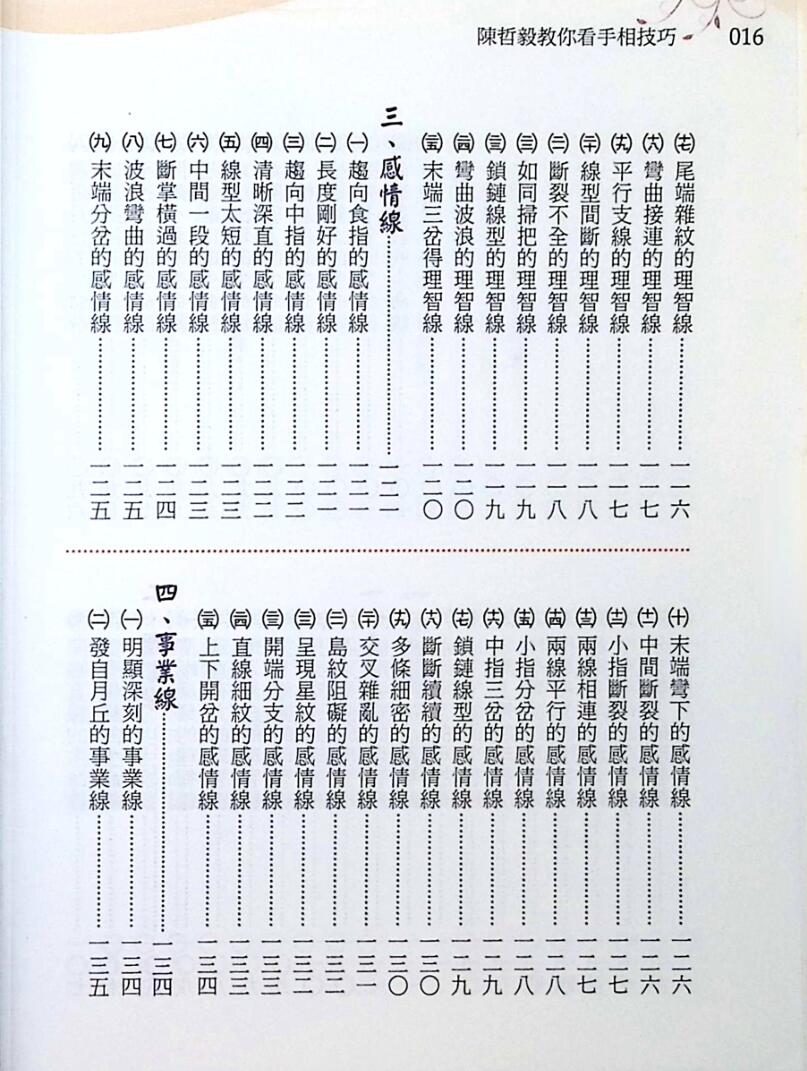 陳哲毅教你看手相技巧 016
(十七)尾端雜紋的理智線⋯⋯一一六
(十八)彎曲接連的理智線⋯⋯一一七
(十九)平行支線的理智線⋯⋯一一七
(二十)線型間斷的理智線⋯⋯一一八
(二一)斷裂不全的理智線⋯⋯一一八
(二二)如同掃把的理智線⋯⋯一一九
(二三)鎖鏈線型的理智線⋯⋯一一九
(二四)彎曲波浪的理智線⋯⋯一二〇
(二五)末端三岔得理智線⋯⋯一二〇
三、感情線⋯⋯一二一
(一)趨向食指的感情線⋯⋯一二一
(二)長度剛好的感情線⋯⋯一二一
(三)趨向中指的感情線⋯⋯一二二
(四)清晰深直的感情線⋯⋯一二二
(五)線型太短的感情線⋯⋯一二三
(六)中間一段的感情線⋯⋯一二三
(七)斷掌橫過的感情線⋯⋯一二四
(八)波浪彎曲的感情線⋯⋯一二五
(九)末端分岔的感情線⋯⋯一二五
(十)末端彎下的感情線⋯⋯一二六
(十一)中間斷裂的感情線⋯⋯一二六
(十二)小指斷裂的感情線⋯⋯一二七
(十三)兩線相連的感情線⋯⋯一二七
(十四)兩線平行的感情線⋯⋯一二八
(十五)小指分岔的感情線⋯⋯一二八
(十六)中指三岔的感情線⋯⋯一二九
(十七)鎖鏈線型的感情線⋯⋯一二九
(十八)斷斷續續的感情線⋯⋯一三〇
(十九)多條細密的感情線⋯⋯一三〇
(二十)交叉雜亂的感情線⋯⋯一三一
(二一)島紋阻礙的感情線⋯⋯一三二
(二二)呈現星紋的感情線⋯⋯一三二
(二三)開端分支的感情線⋯⋯一三三
(二四)直線細紋的感情線⋯⋯一三三
(二五)上下開岔的感情線⋯⋯一三四
四、事業線⋯⋯一三四
(一)明顯深刻的事業線⋯⋯一三四
(二)發自月丘的事業線⋯⋯一三五